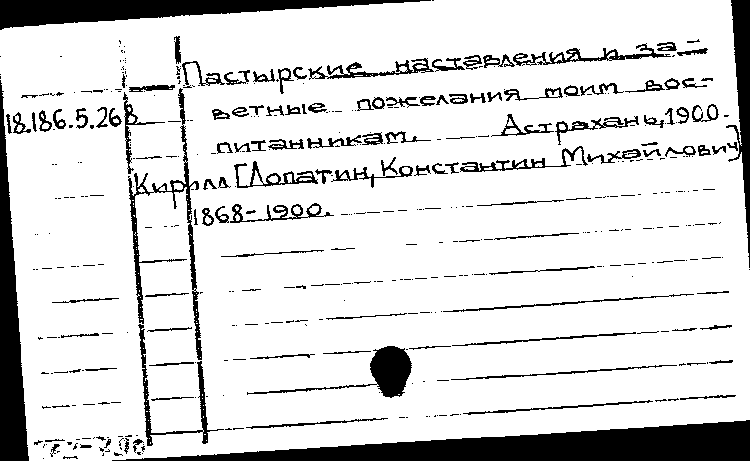 Пастырские наставления и за-
18.186.5.268 ветные пожелания моим вос-
питанникам. Астрахань, 1900.
Кирилл [Лопатин, Константин Михайлович]
1868-1900.